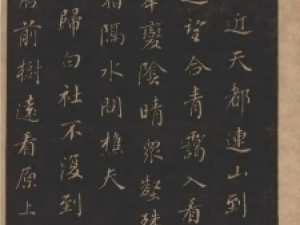 近天都連山到
望合青靄入看
峰變陰晴眾壑殊
宿隔水問樵夫
歸白社不復到
前樹遠看原上